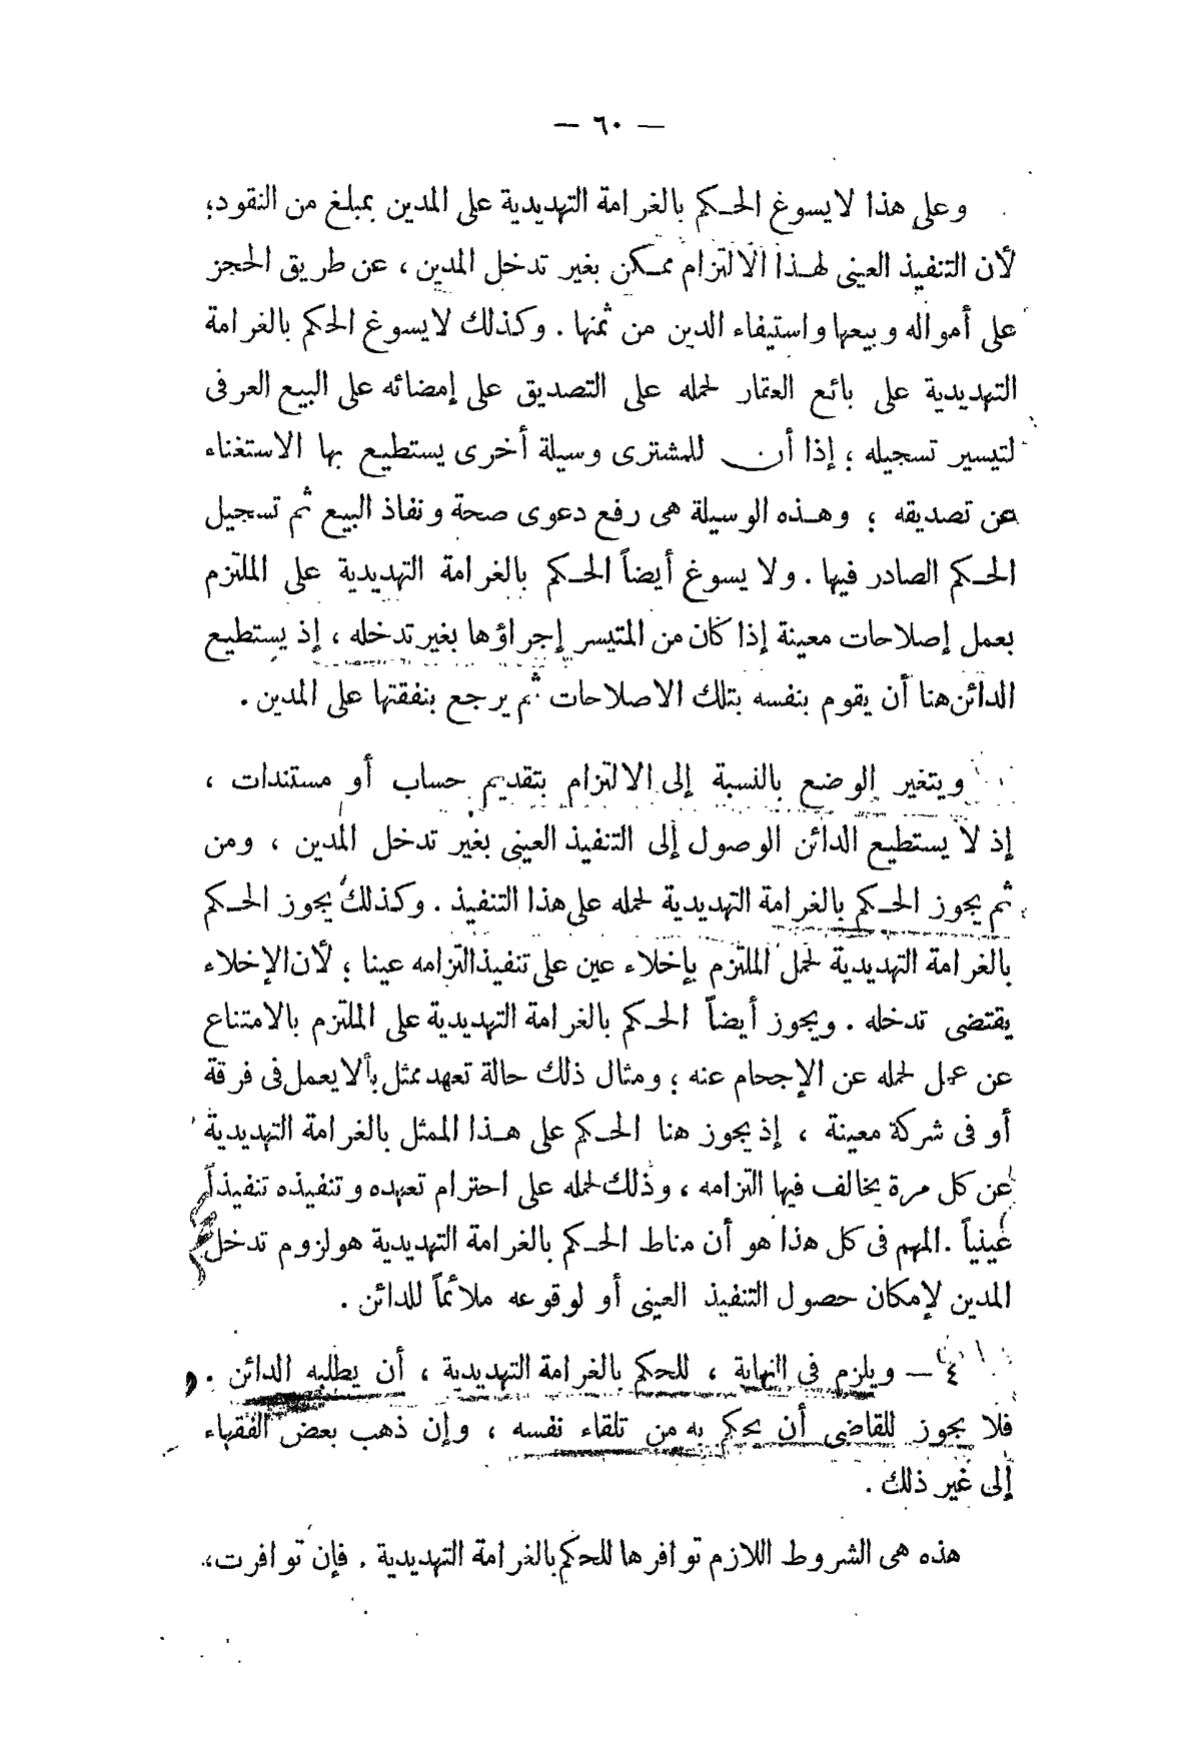 — ٦٠ —
وعلى هذا لا يسوغ الحكم بالغرامة التهديدية على المدين بمبلغ من النقود؛
لأن التنفيذ العينى لهذا الالتزام ممكن بغير تدخل المدين ، عن طريق الحجز
على أمواله وبيعها واستيفاء الدين من ثمنها . وكذلك لا يسوغ الحكم بالغرامة
التهديدية على بائع العقار لحمله على التصديق على إمضائه على البيع العرفى
لتيسير تسجيله ؛ إذا أن للمشترى وسيلة أخرى يستطيع بها الاستغناء
عن تصديقه ؛ وهذه الوسيلة هى رفع دعوى صحة ونفاذ البيع ثم تسجيل
الحكم الصادر فيها . ولا يسوغ أيضاً الحكم بالغرامة التهديدية على الملتزم
بعمل إصلاحات معينة إذا كان من المتيسر إجراؤها بغير تدخله ، إذ يستطيع
الدائن هنا أن يقوم بنفسه بتلك الاصلاحات ثم يرجع بنفقتها على المدين .
ويتغير الوضع بالنسبة إلى الالتزام بتقديم حساب أو مستندات ،
إذ لا يستطيع الدائن الوصول إلى التنفيذ العينى بغير تدخل المدين ، ومن
ثم يجوز الحكم بالغرامة التهديدية لحمله على هذا التنفيذ . وكذلك يجوز الحكم
بالغرامة التهديدية لحمل الملتزم بإخلاء عين على تنفيذ التزامه عينا ؛ لأن الإخلاء
يقتضى تدخله . ويجوز أيضاً الحكم بالغرامة التهديدية على الملتزم بالامتناع
عن عمل لحمله عن الإحجام عنه ؛ ومثال ذلك حالة تعهد ممثل بألا يعمل فى فرقة
أو فى شركة معينة ، إذ يجوز هنا الحكم على هذا الممثل بالغرامة التهديدية
عن كل مرة يخالف فيها التزامه ، وذلك لحمله على احترام تعهده وتنفيذه تنفيذاً
عينياً . المهم فى كل هذا هو أن مناط الحكم بالغرامة التهديدية هو لزوم تدخل
المدين لإمكان حصول التنفيذ العينى أو لوقوعه ملائماً للدائن .
٤ — ويلزم فى النهاية ، للحكم بالغرامة التهديدية ، أن يطلبه الدائن .
فلا يجوز للقاضى أن يحكم به من تلقاء نفسه ، وإن ذهب بعض الفقهاء
إلى غير ذلك .
هذه هى الشروط اللازم توافرها للحكم بالغرامة التهديدية . فإن توافرت،